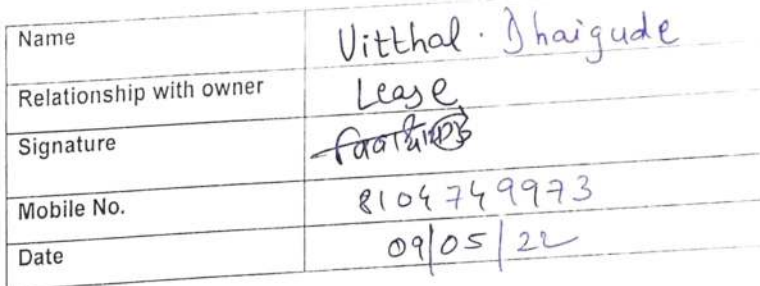 Name Vitthal. Dhaigude
Relationship with owner Lease
Signature
Mobile No. 8104749973
Date 09/05/22